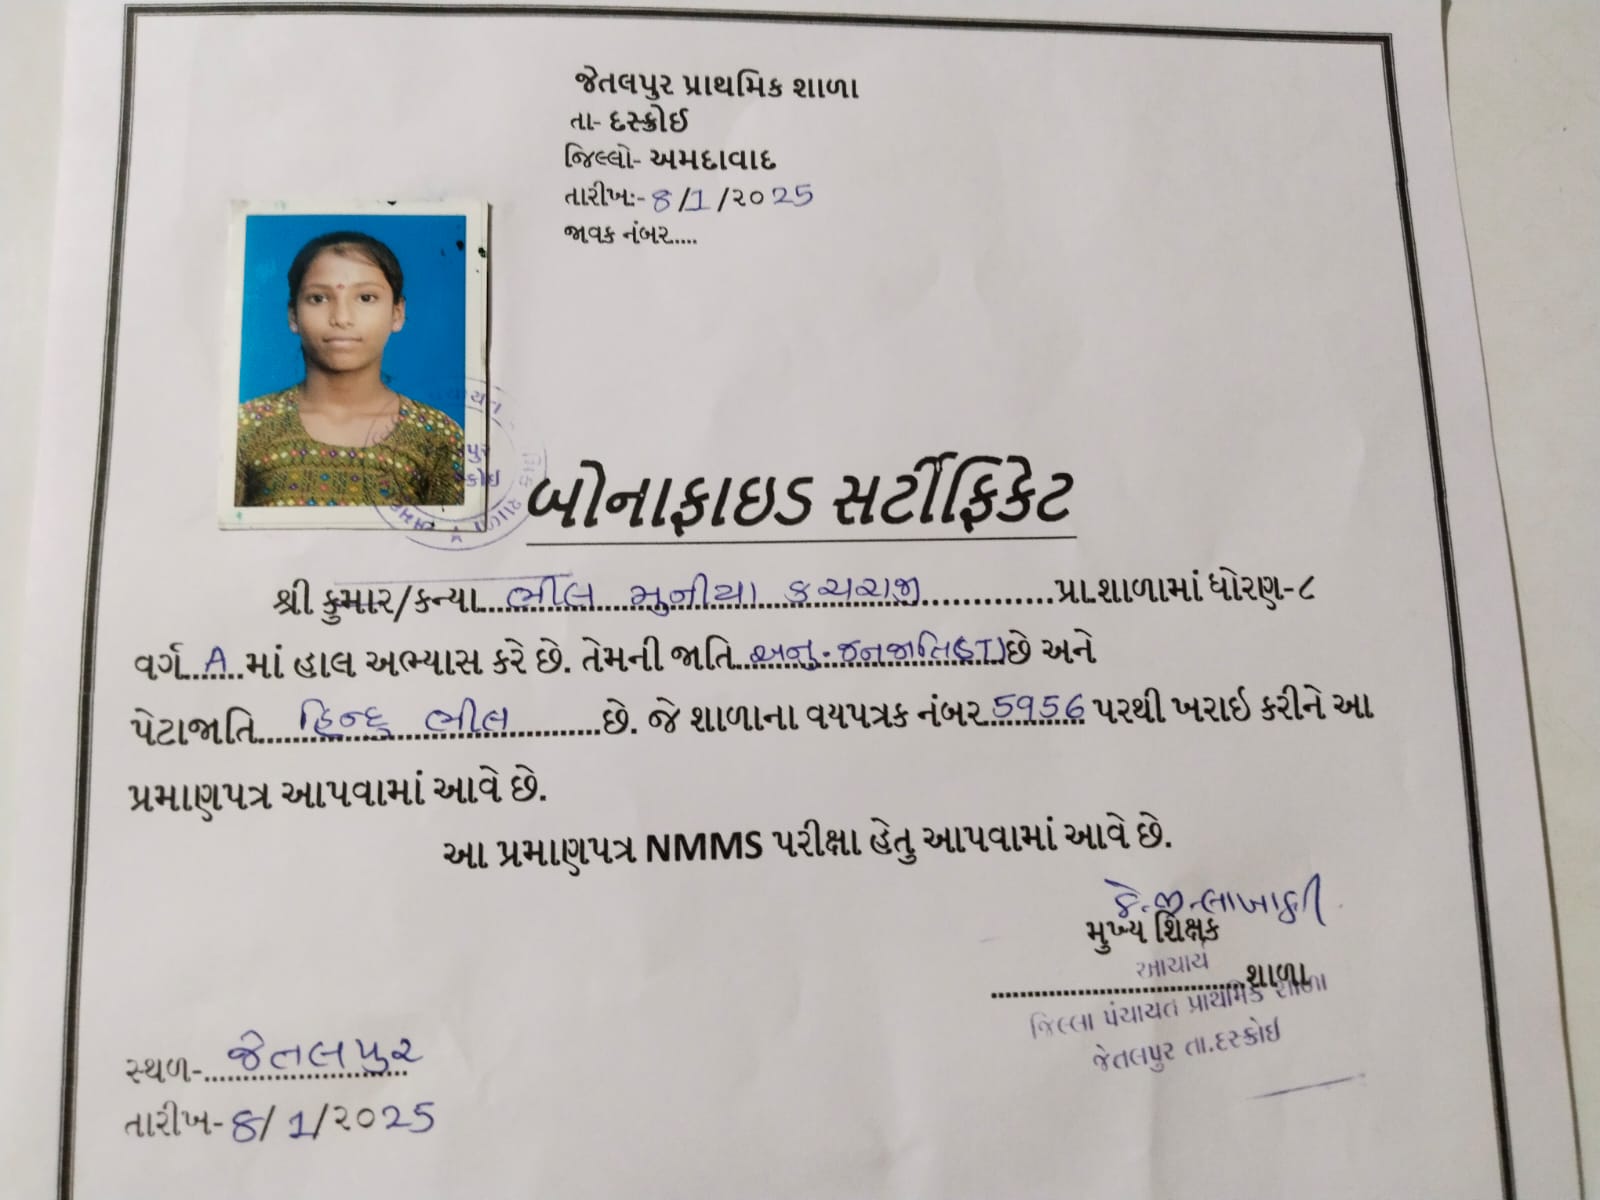 જેતલપુર પ્રાથમિક શાળા
તા- દસ્ક્રોઈ
જિલ્લો- અમદાવાદ
તારીખ:- 8/1/૨૦25
જાવક નંબર.....
બોનાફાઇડ સર્ટીફિકેટ
શ્રી કુમાર/કન્યા...ભીલ મુનીયા કચરાજી...............પ્રા.શાળામાં ધોરણ-૮
વર્ગ..A..માં હાલ અભ્યાસ કરે છે. તેમની જાતિ..અનુ.જનજાતિ(ST)છે અને
પેટાજાતિ....હિન્દુ ભીલ............છે. જે શાળાના વયપત્રક નંબર 5956 પરથી ખરાઇ કરીને આ
પ્રમાણપત્ર આપવામાં આવે છે.
આ પ્રમાણપત્ર NMMS પરીક્ષા હેતુ આપવામાં આવે છે.
મુખ્ય શિક્ષક
આચાર્ય
..............................શાળા
જિલ્લા પંચાયત પ્રાથમિક શાળા
જેતલપુર તા.દસ્ક્રોઇ
સ્થળ-..જેતલપુર
તારીખ-8/1/૨૦25